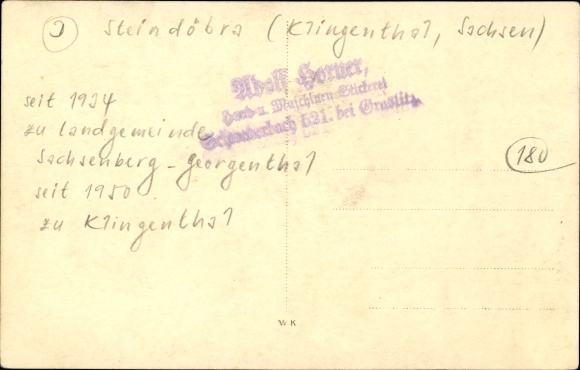 Ɔ Steindöbra (Klingenthal, Sachsen)
Adolf Horner,
Hand- u. Maschinen Stickerei
Schwaderbach 521. bei Graslitz
seit 1934
zu Landgemeinde
Sachsenberg-Georgenthal
seit 1950
zu Klingenthal
180
K